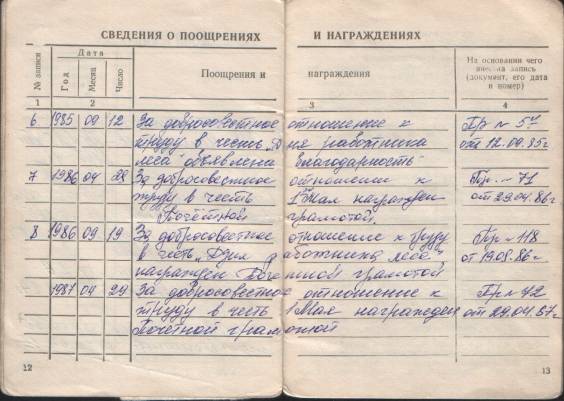 СВЕДЕНИЯ О ПООЩРЕНИЯХ И НАГРАЖДЕНИЯХ
№ записи
Дата
Год
Месяц
Число
Поощрения и награждения
На основании чего
внесена запись
(документ, его дата
и номер)
1 2 3 4
6 1985 09 12 За добросовестное отношение к Пр № 57
труду в честь "Дня работника от 12.09.85г
леса" объявлена благодарность
7 1986 04 29 За добросовестное отношении к Пр. № 71
труду в честь 1 Мая награжден от 29.04.86г
Почётной грамотой.
8 1986 09 19 За добросовестное отношение к труду Пр № 118
в честь "Дня работника леса" от 19.08.86г
награжден Почетной грамотой
1987 04 29 За добросовестное отношение к Пр № 72
труду в честь 1 Мая награжден от 29.04.87г
Почётной грамотой
12 13